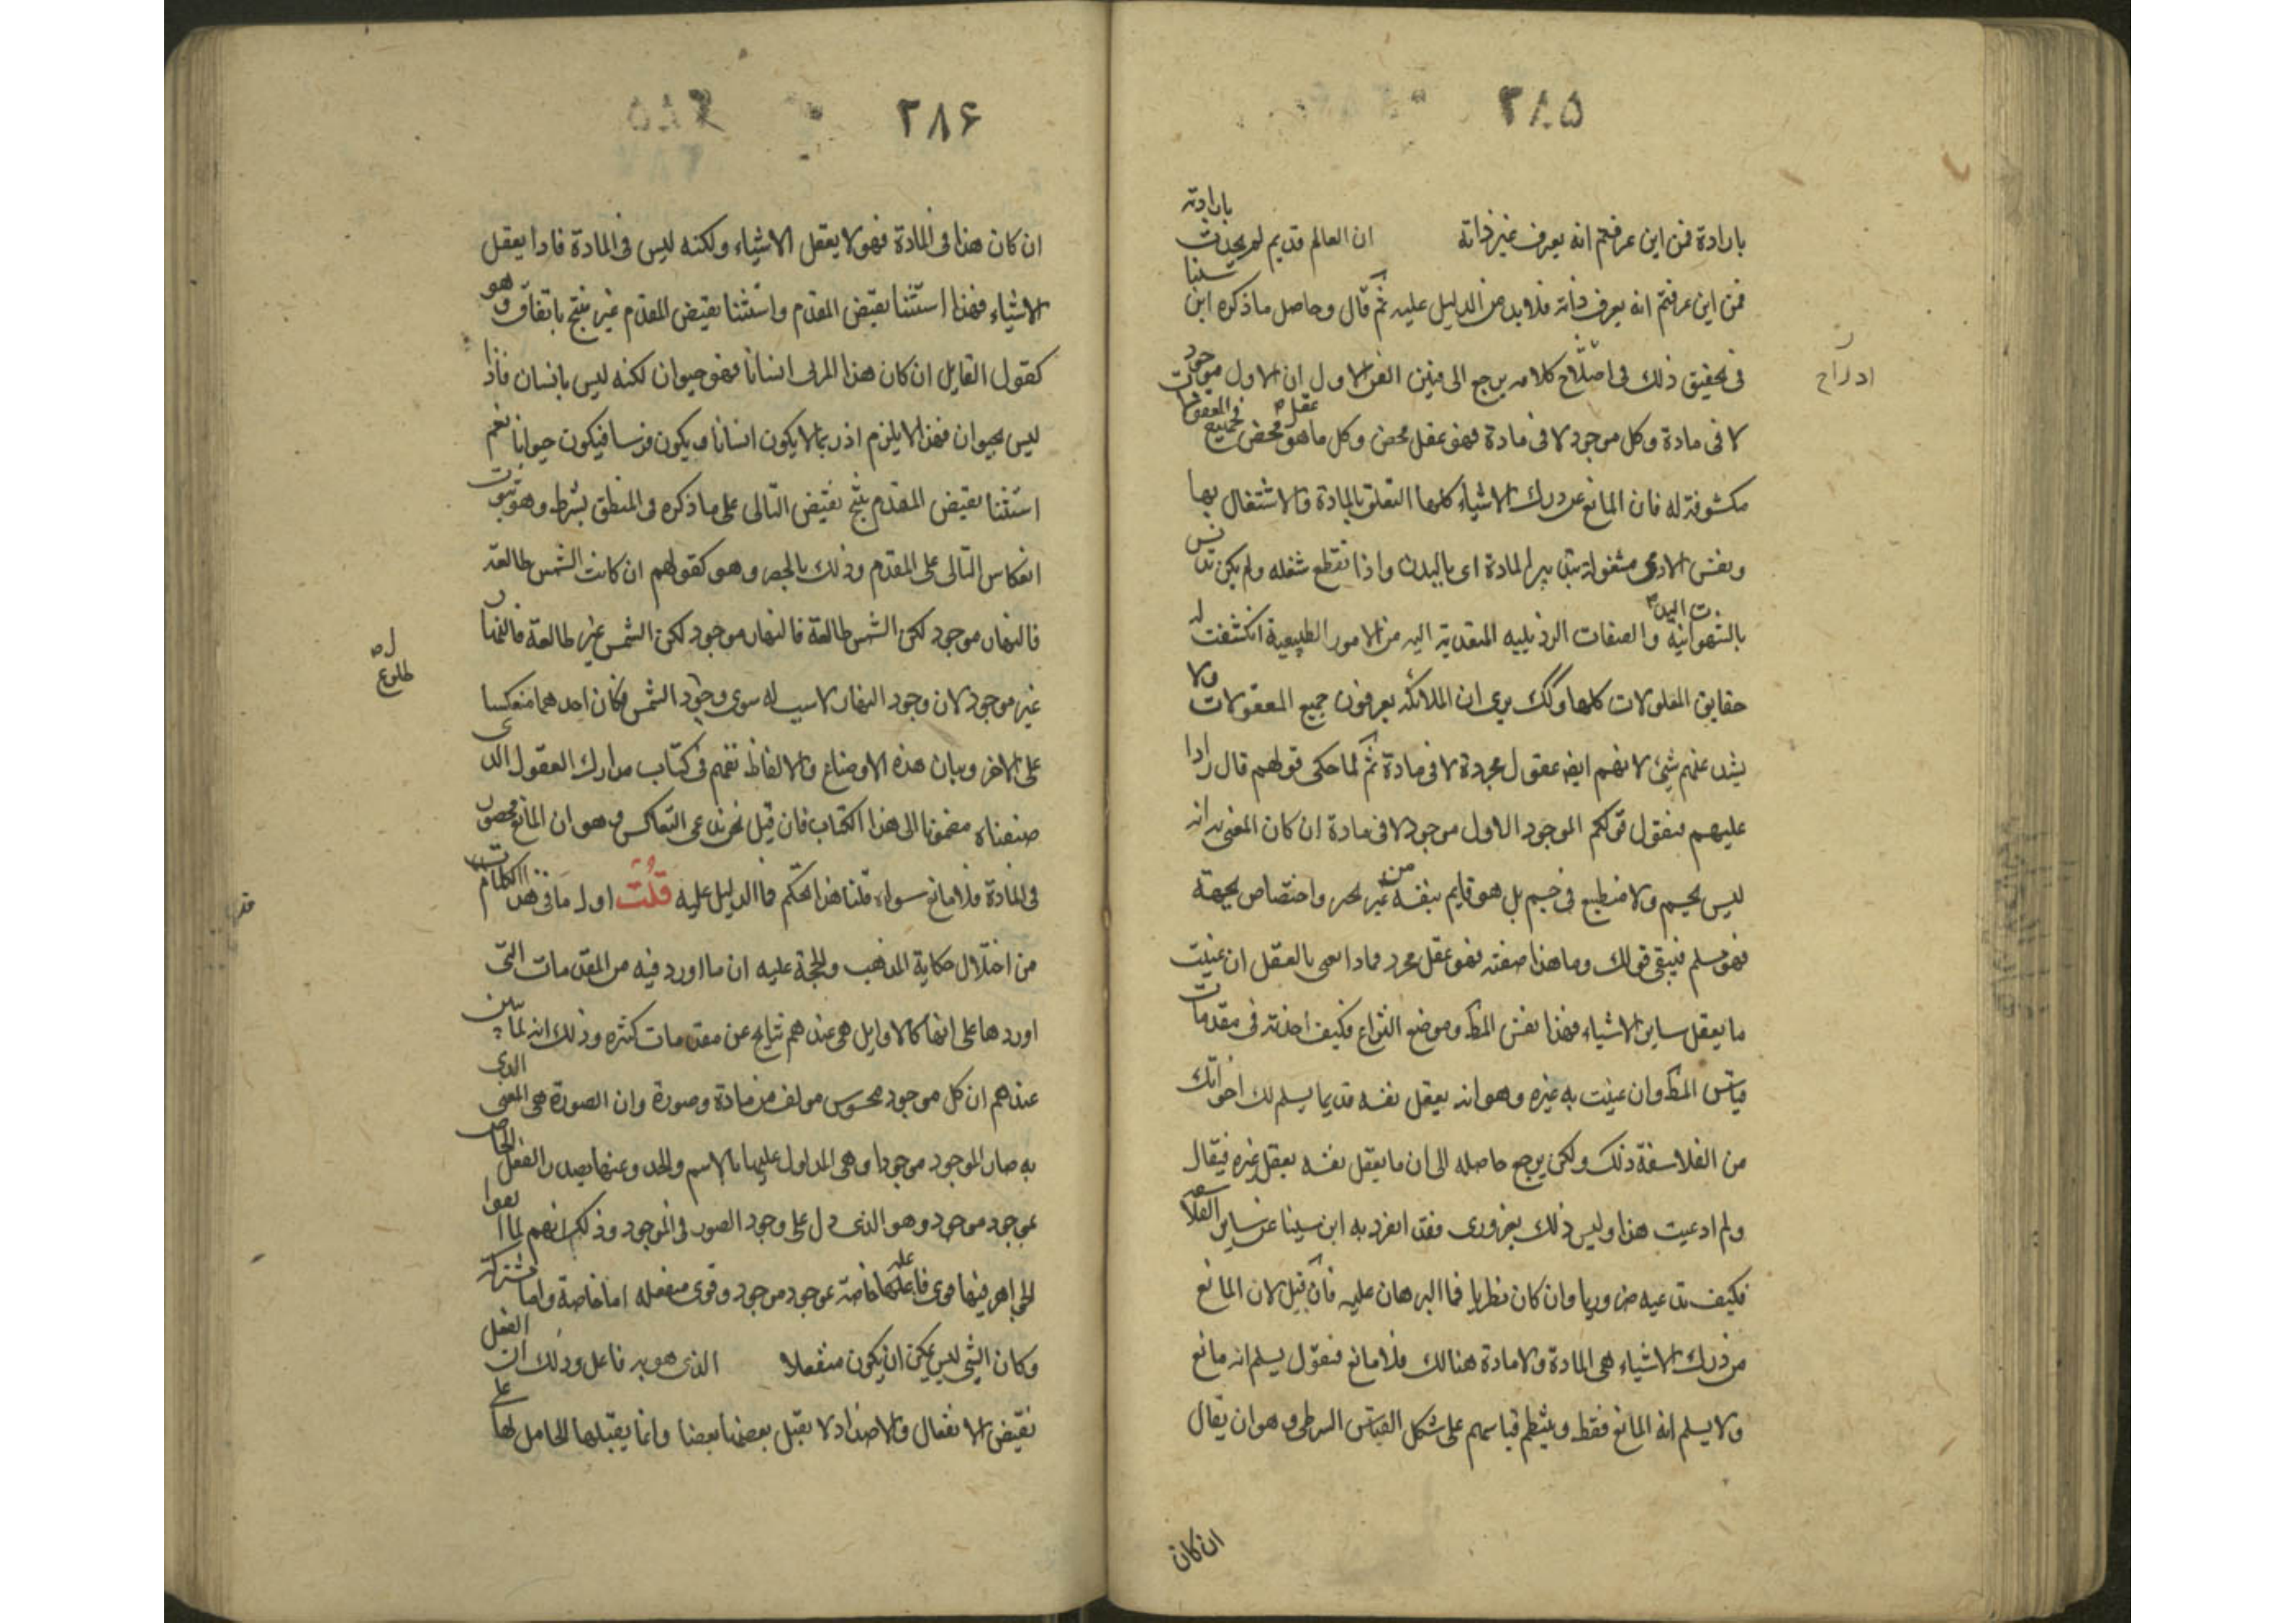 ٢٨٥
بارادته
بارادة فمن اين عرفتم انه يعرف غير ذاته ان العالم قديم لم يحدث
سينا
فمن اين عرفتم انه يعرف ذاته فلا بد من الدليل عليه ثم قال وحاصل ما ذكره ابن
فى تحقيق ذلك فى كلامه يرجع الى فنين الفن الاول ان الاول موجود
ادراج
لا فى مادة وكل موجود لا فى مادة فهو عقل محض وكل ما هو عقل محض فجميع المعقولات
مكشوفة له فان المانع عن درك الاشياء كلها التعلق بالمادة والاشتغال بها
ونفس الادمى مشغولة بتدبير المادة اى بالبدن واذا انقطع شغله ولم يكن تدنس
بالشهوات البدنية والصفات الرذيلية المتعدية اليه من الامور الطبيعية انكشفت له
حقايق المعلولات كلها ولذلك يرى ان الملائكة يعرفون جميع المعقولات ولا
يشذ عنهم شئ لانهم ايضه عقول مجردة لا فى مادة ثم لما حكى قولهم قال رادا
عليهم فنقول قولكم الموجود الاول موجود لا فى مادة ان كان المعنى به انه
ليس بجسم ولا منطبع فى جسم بل هو قايم بنفسه من غير تحيز واختصاص بجهة
فهو مسلم فيبقى قولك وما هذا صفته فهو عقل مجرد فماذا تعنى بالعقل ان عنيت
ما يعقل ساير الاشياء فهذا نفس المط وموضع النزاع فكيف اخذته فى مقدمات
قياس المط وان عنيت به غيره وهو انه يعقل نفسه فربما يسلم لك اخوانك
من الفلاسفة ذلك ولكن يرجع حاصله الى ان ما يعقل نفسه يعقل غيره فيقال
ولم ادعيت هذا وليس ذلك بضرورى فقد انفرد به ابن سينا عن ساير الفلاسفه
فكيف تدعيه ضروريا وان كان نظريا فما البرهان عليه فان قيل لان المانع
من درك الاشياء هى المادة ولا مادة هنالك فلا مانع فنقول يسلم انه مانع
ولا يسلم انه المانع فقط وينتظم قياسهم على شكل القياس الشرطى وهو ان يقال
ان كان
٢٨٦
ان كان هذا فى المادة فهو لا يعقل الاشياء ولكنه ليس فى المادة فاذا يعقل
الاشياء فهذا استثنا نقيض المقدم واستثنا نقيض المقدم غير منتج باتفاق وهو
كقول القايل ان كان هذا المرئى انسانا فهو حيوان لكنه ليس بانسان فاذا
ليس بحيوان فهذا لا يلزم اذ ربما لا يكون انسانا ويكون فرسا فيكون حيوانا نعم
استثنا نقيض المقدم ينتج نقيض التالى على ما ذكره فى المنطق بشرط وهو ثبوت
انعكاس التالى على المقدم وذلك بالحصر وهو كقولهم ان كانت الشمس طالعة
فالنهار موجود لكن الشمس طالعة فالنهار موجود لكن الشمس غير طالعة فالنهار
غير موجود لان وجود النهار لا سبب له سوى وجود الشمس فكان احدهما منعكسا
طلوع
على الاخر وبيان هذه الاوضاع والالفاظ تفهم فى كتاب مدارك العقول الذى
صنفناه مضموما الى هذا الكتاب فان قيل نحن ندعى التعاكس وهو ان المانع محصور
فى المادة فلا مانع سواه قلنا هذا تحكم فما الدليل عليه قلت اول ما فى هذا الكلام
من اختلال حكاية المذهب والحجة عليه ان ما اورد فيه من المقدمات التى
اوردها على انها كالاوايل هى عندهم نتايج عن مقدمات كثيره وذلك انه لما تبين
عندهم ان كل موجود محسوس مولف من مادة وصورة وان الصورة هى المعنى الذى
به صار الموجود موجودا وهى المدلول عليها بالاسم والحد وعنها يصدر الفعل الخاص
بموجود موجود وهو الذى دل على وجود الصور فى الموجود وذلك انهم لما الفوا
الجواهر فيها قوى فاعلة خاصة بموجود موجود وقوى منفعله اما خاصة واما مشتركة
وكان الشئ ليس يمكن ان يكون منفعلا الذى هو به فاعل وذلك ان الفعل
نقيض الانفعال والاضداد لا يقبل بعضها بعضا وانما يقبلها الحامل لها على